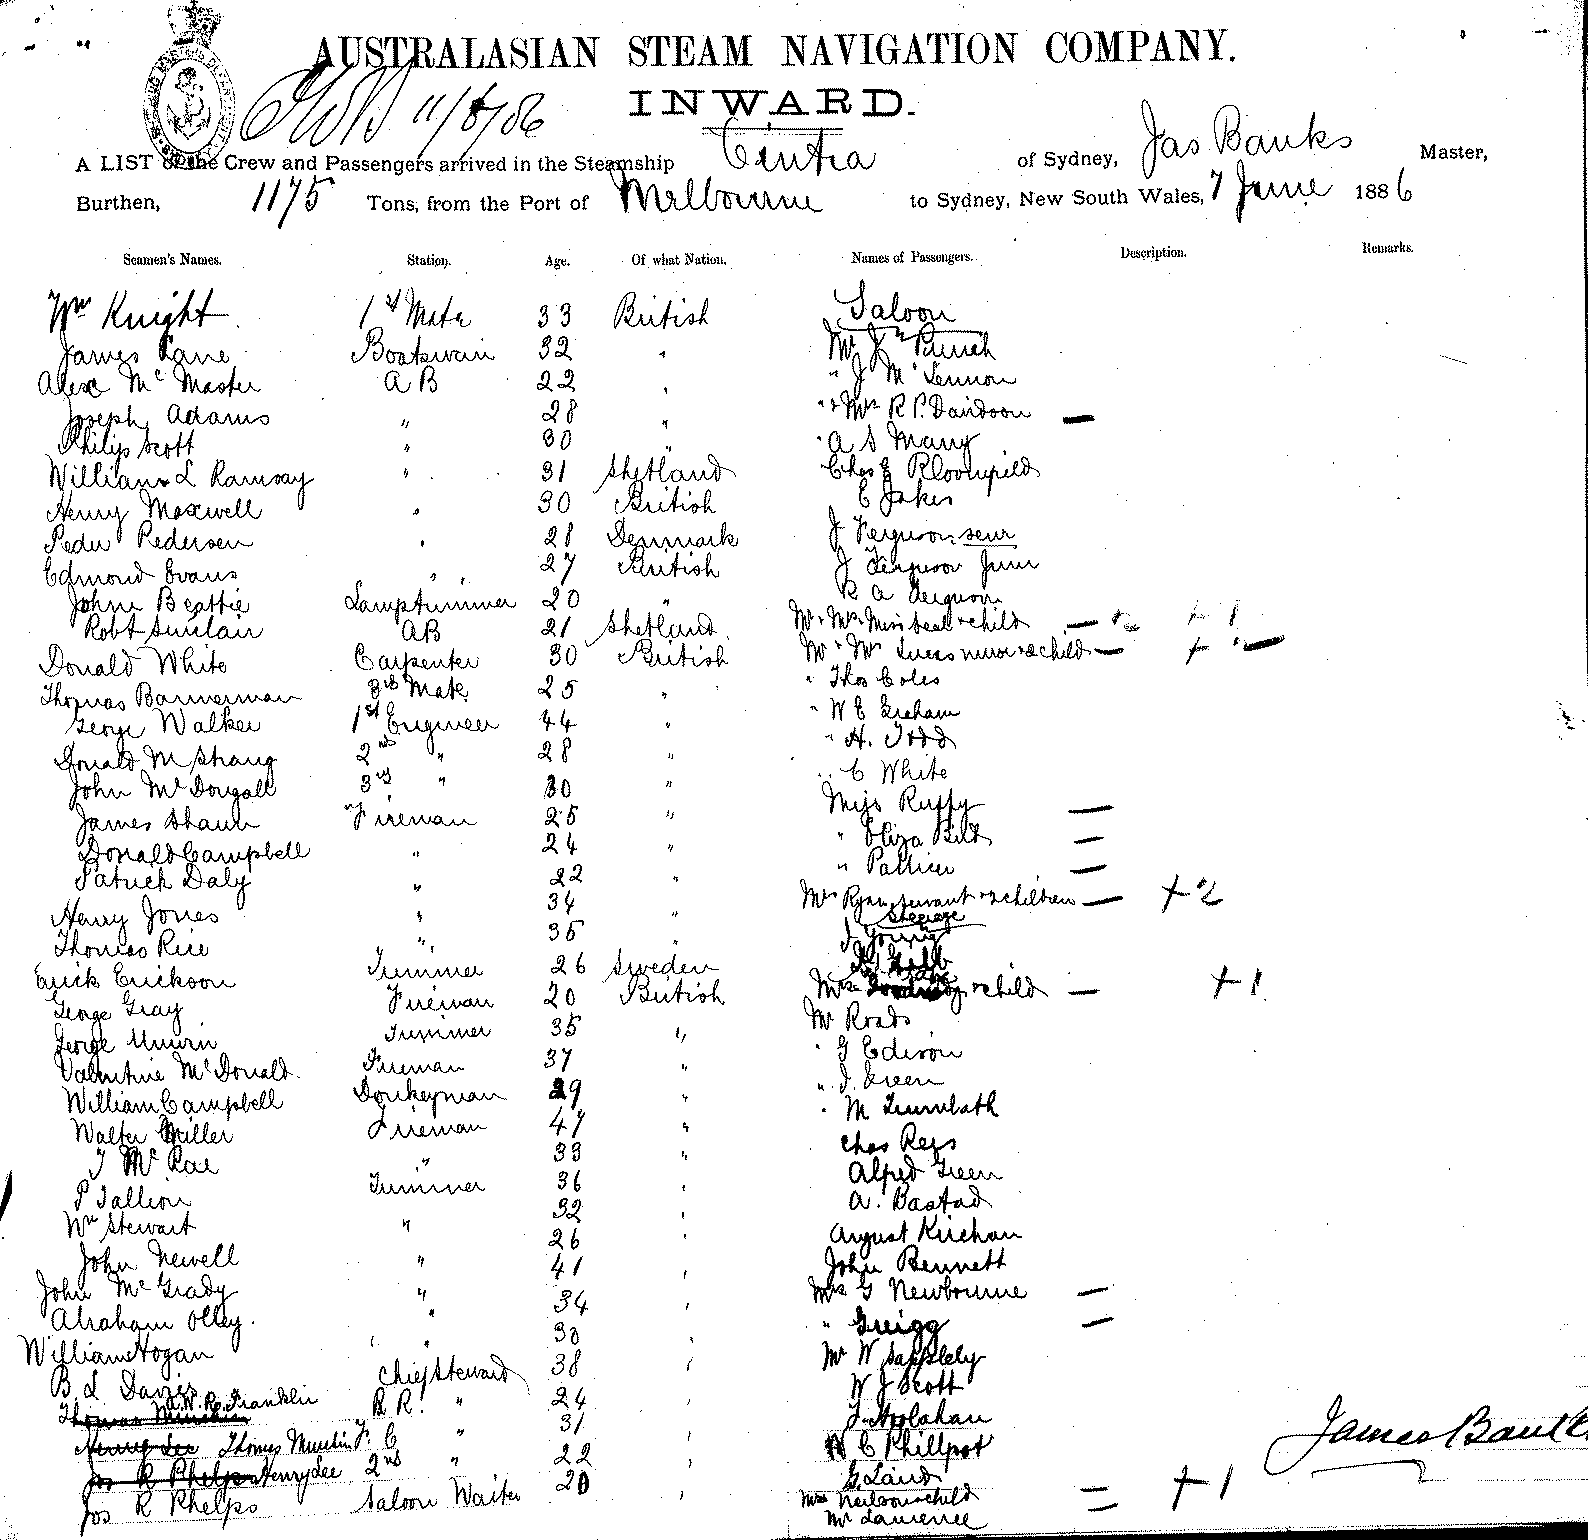 AUSTRALASIAN STEAM NAVIGATION COMPANY.
11/6/86 INWARD.
A LIST of the Crew and Passengers arrived in the Steamship Cintra of Sydney, Jas Banks Master,
Burthen, 1175 Tons, from the Port of Melbourne to Sydney, New South Wales, 7 June 1886
Seamen's Names. Station. Age. Of what Nation. Names of Passengers. Description. Remarks.
Wm Knight 1st Mate 33 British Saloon
James Lane Boatswain 32 " Mr Jn
Alexr Mc Master A B 22 " " J McLennon
Joseph Adams " 28 " " + Mrs R P. Davidson —
Philip Scott " 30 " " A S Many
William L Ramsay " 31 Shetland Chas E Bloomfield
Henry Maxwell " 30 British C Jakes
Peder Pedersen " 28 Denmark J Ferguson senr
Edmond Evans " 27 British J Ferguson Junr
John Beattie Lamptrimmer 20 " R A Ferguson
Robt Sinclair AB 21 Shetland Mr + Mrs + child — + 1
Donald White Carpenter 30 British Mr + Mrs + child — +
Thomas Bannerman 3rd Mate 25 " " Thos Coles
George Walker 1st Engineer 44 " " W E Graham
Donald M Strang 2nd " 28 " " H. Todd
John McDougall 3rd " 30 " " C White
James Shaun Fireman 25 " Miss Ruffy —
Donald Campbell " 24 " " Eliza —
Patrick Daly " 22 " " —
Henry Jones " 34 " Mrs Ryan servant + 2 children — + 2
Steerage
Thomas Rice " 35 " J Young
Erick Erickson Trimmer 26 Sweden
George Gray Fireman 20 British Mrs + child — + 1
George Unwin Trimmer 35 " Mr Roads
Valentine McDonald Fireman 37 " " G Edison
William Campbell Donkeyman 29 " " J. Green
Walter Miller Fireman 47 " " M
J McRae " 33 " Chas Regs
P Tallion Trimmer 36 " Alfred Green
Wm Stewart " 32 " A. Bastad
John Newell " 26 " August Kirchan
John McGrady " 41 " John Bennett
Abraham Olley " 34 " Mrs G Newbourne —
William Hogan " 30 " " Greigg —
B L Davies Chief Steward 38 " Mr W Sapplely
W. R. Franklin B R. " 24 " W J Scott
Thomas Munkin F. C " 31 " J Hoolahan
Henry Lee 2nd " 22 " W C Phillpot
Jos R Phelps Saloon Waiter 20 " G Laird
Mrs Neilson + child — + 1
Mr Lawrence —
James Banks